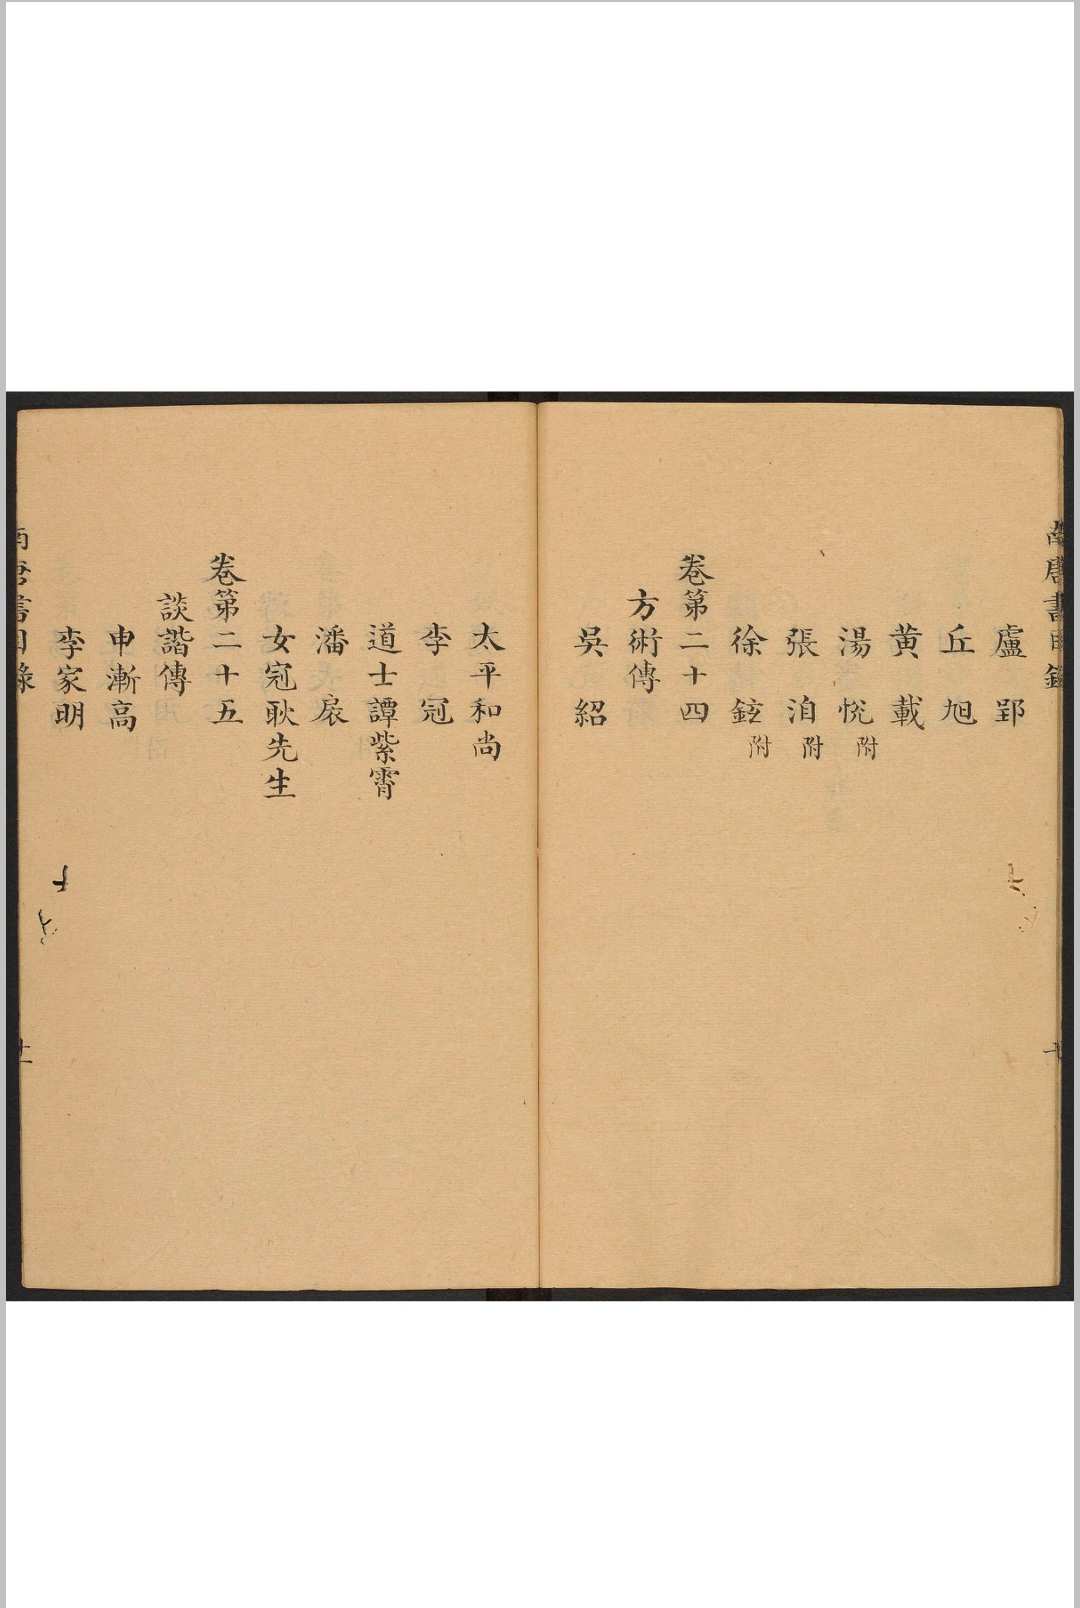 南唐書目錄
盧郢
丘旭
黄載
湯悅附
張洎附
徐鉉附
卷第二十四
方術傳
吳紹
太平和尚
李冠
道士譚紫霄
潘扆
女冠耿先生
卷第二十五
談諧傳
申漸高
李家明
南唐書目錄